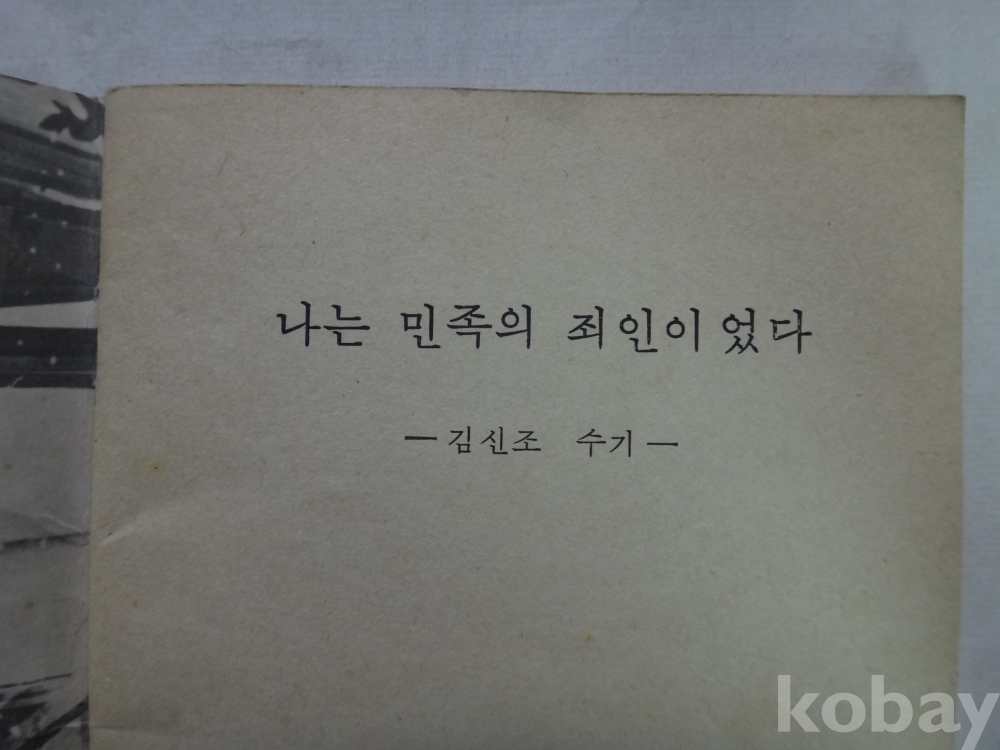 나는 민족의 죄인이었다
— 김신조 수기 —
kobay